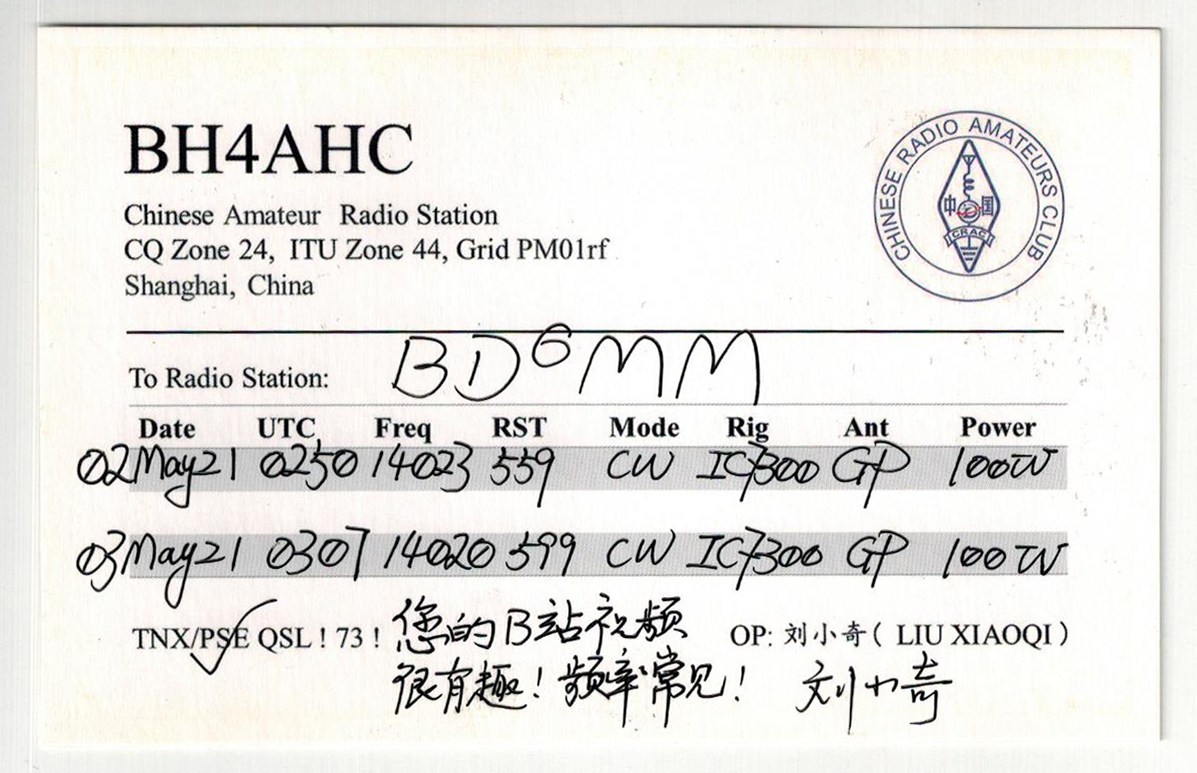 BH4AHC
Chinese Amateur Radio Station
CQ Zone 24, ITU Zone 44, Grid PM01rf
Shanghai, China
CHINESE RADIO AMATEURS CLUB
中 国
CRAC
To Radio Station: BD6MM
Date UTC Freq RST Mode Rig Ant Power
02May21 0250 14023 559 CW IC7300 GP 100W
03May21 0307 14020 599 CW IC7300 GP 100W
TNX/PSE QSL ! 73 ! 您的B站视频 OP: 刘小奇 ( LIU XIAOQI )
很有趣！频率常见！ 刘小奇